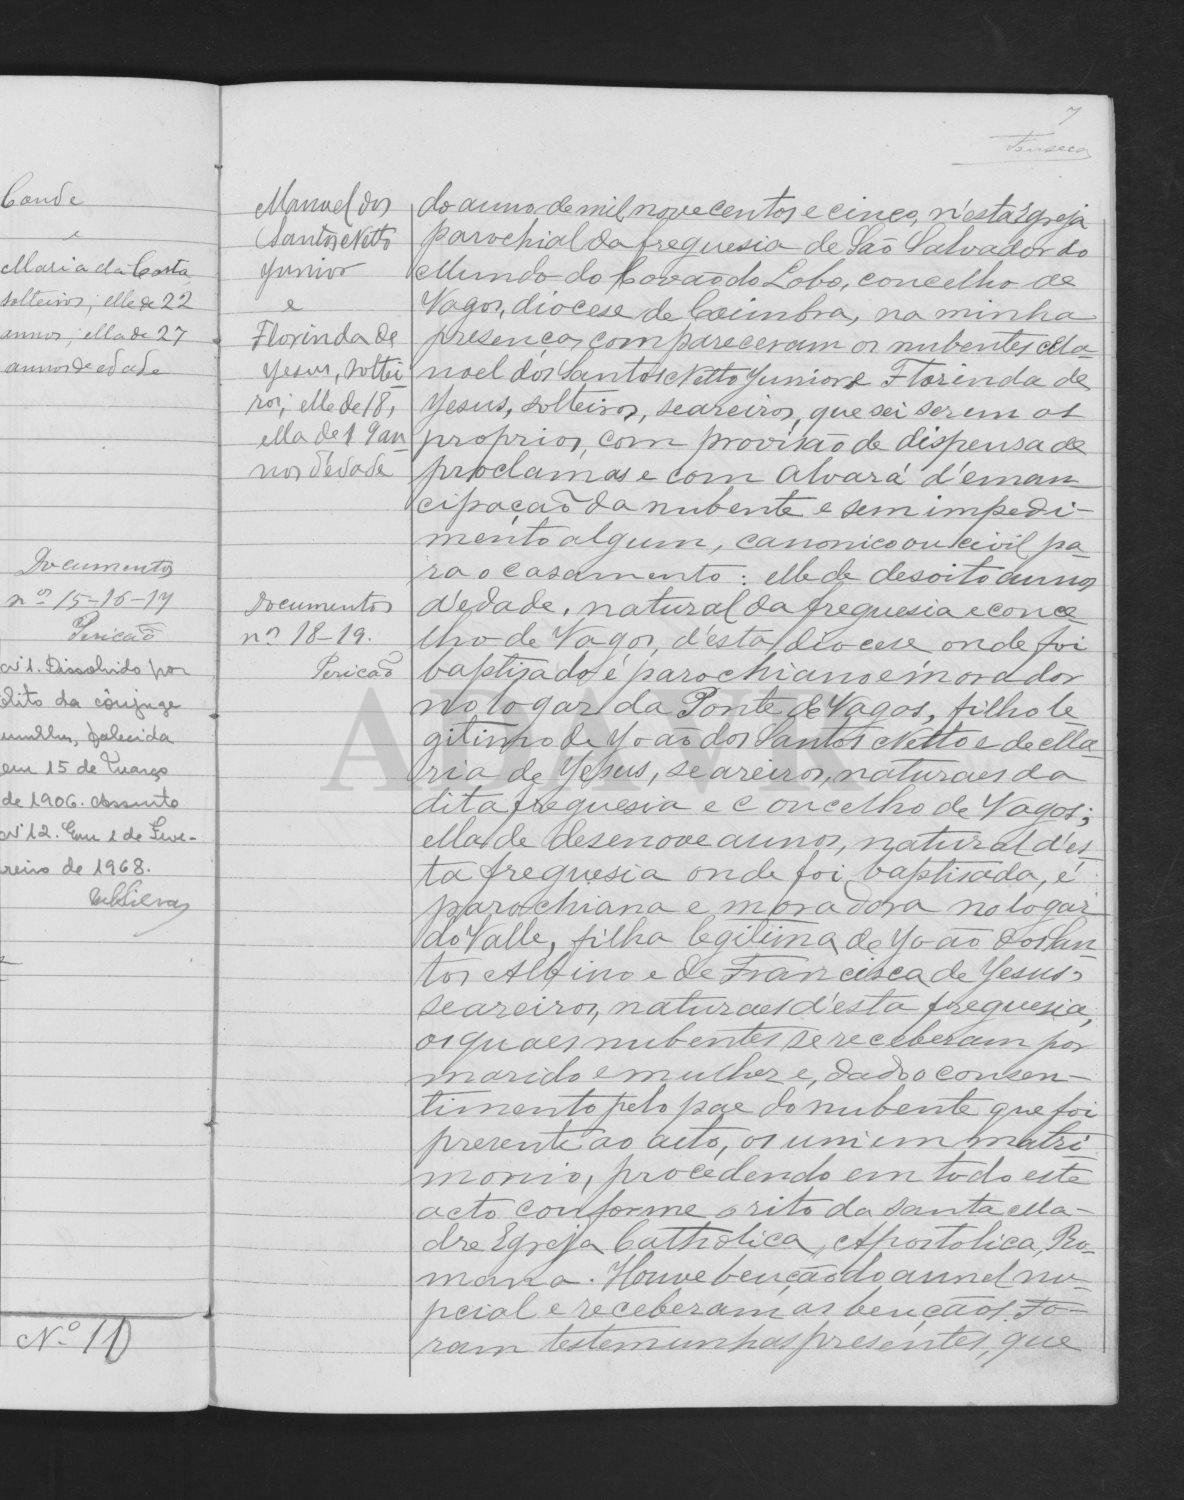 Conde
e
Maria da Costa
solteiros; elle de 22
annos; ella de 27
annos de edade
Documentos
nos 15-16-17
Pericão
Nº 1. Dissolvido por
óbito da cônjuge
mulher, falecida
em 15 de Março
de 1906. Assento
Nº 12. Em 1 de Feve-
reiro de 1968.
Nº 10
7
Fonseca
Manuel dos
Santos Netto
Junior
e
Florinda de
Jesus, soltei
ros; elle de 18,
ella de 19 an
nos d'edade
Documentos
nos 18-19.
Pericão
do anno de mil novecentos e cinco, n'esta Egreja
parochial da freguesia de São Salvador do
Mundo do Covão do Lobo, concelho de
Vagos, diocese de Coimbra, na minha
presença, compareceram os nubentes Ma-
noel dos Santos Netto Junior e Florinda de
Jesus, solteiros, seareiros, que sei serem os
proprios, com provisão de dispensa de
proclamas e com alvará d'eman-
cipação da nubente e sem impedi-
mento algum, canonico ou civil pa-
ra o casamento: elle de desoito annos
d'edade, natural da freguesia e conce
lho de Vagos, d'esta diocese onde foi
baptizado é parochiano e morador
no logar da Ponte de Vagos, filho le
gitimo de João dos Santos Netto e de Ma
ria de Jesus, seareiros, naturaes da
dita freguesia e concelho de Vagos;
ella de desenove annos, natural d'es
ta freguesia onde foi baptisada, é
parochiana e moradora no logar
do Valle, filha legitima de João dos San
tos Albino e de Francisca de Jesus,
seareiros, naturaes d'esta freguesia,
os quaes nubentes se receberam por
marido e mulher e, dado o consen-
timento pelo pae do nubente que foi
presente ao acto, os uni em matri
monio, procedendo em todo este
acto conforme o rito da Santa Ma-
dre Egreja Catholica, Apostolica, Ro-
mana. Houve benção do annel nu-
pcial e receberam as bençãos. Fo-
ram testemunhas presentes, que